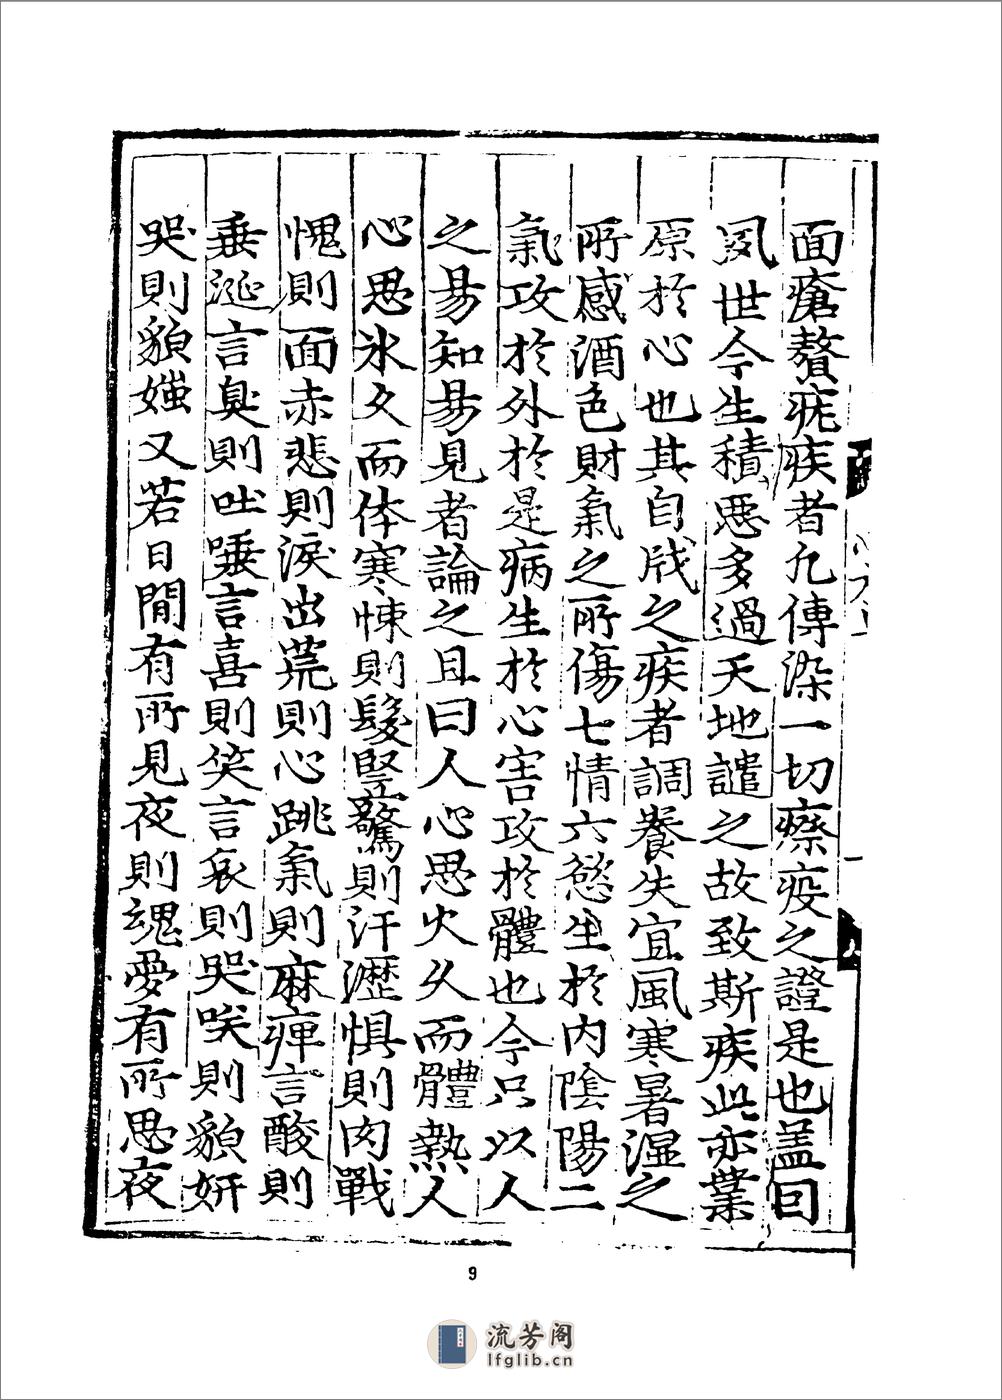 面瘡贅疣疾者凢傳染一切瘵疫之證是也盖曰
夙世今生積惡多過天地譴之故致斯疾此亦業
原於心也其自戕之疾者調養失宜風寒暑濕之
所感酒色財氣之所傷七情六慾生於内陰陽二
氣攻於外於是病生於心害攻於體也今只以人
之昜知昜見者論之且曰人心思火乆而體熱人
心思氷乆而体寒悚則髮竪驚則汗瀝惧則肉戰
愧則面赤悲則淚出荒則心跳氣則麻痺言酸則
垂涎言臭則吐唾言喜則笑言哀則哭唉則貌妍
哭則貌媸又若日間有所見夜則魂愛有所思夜
9
流芳阁
lfglib.cn